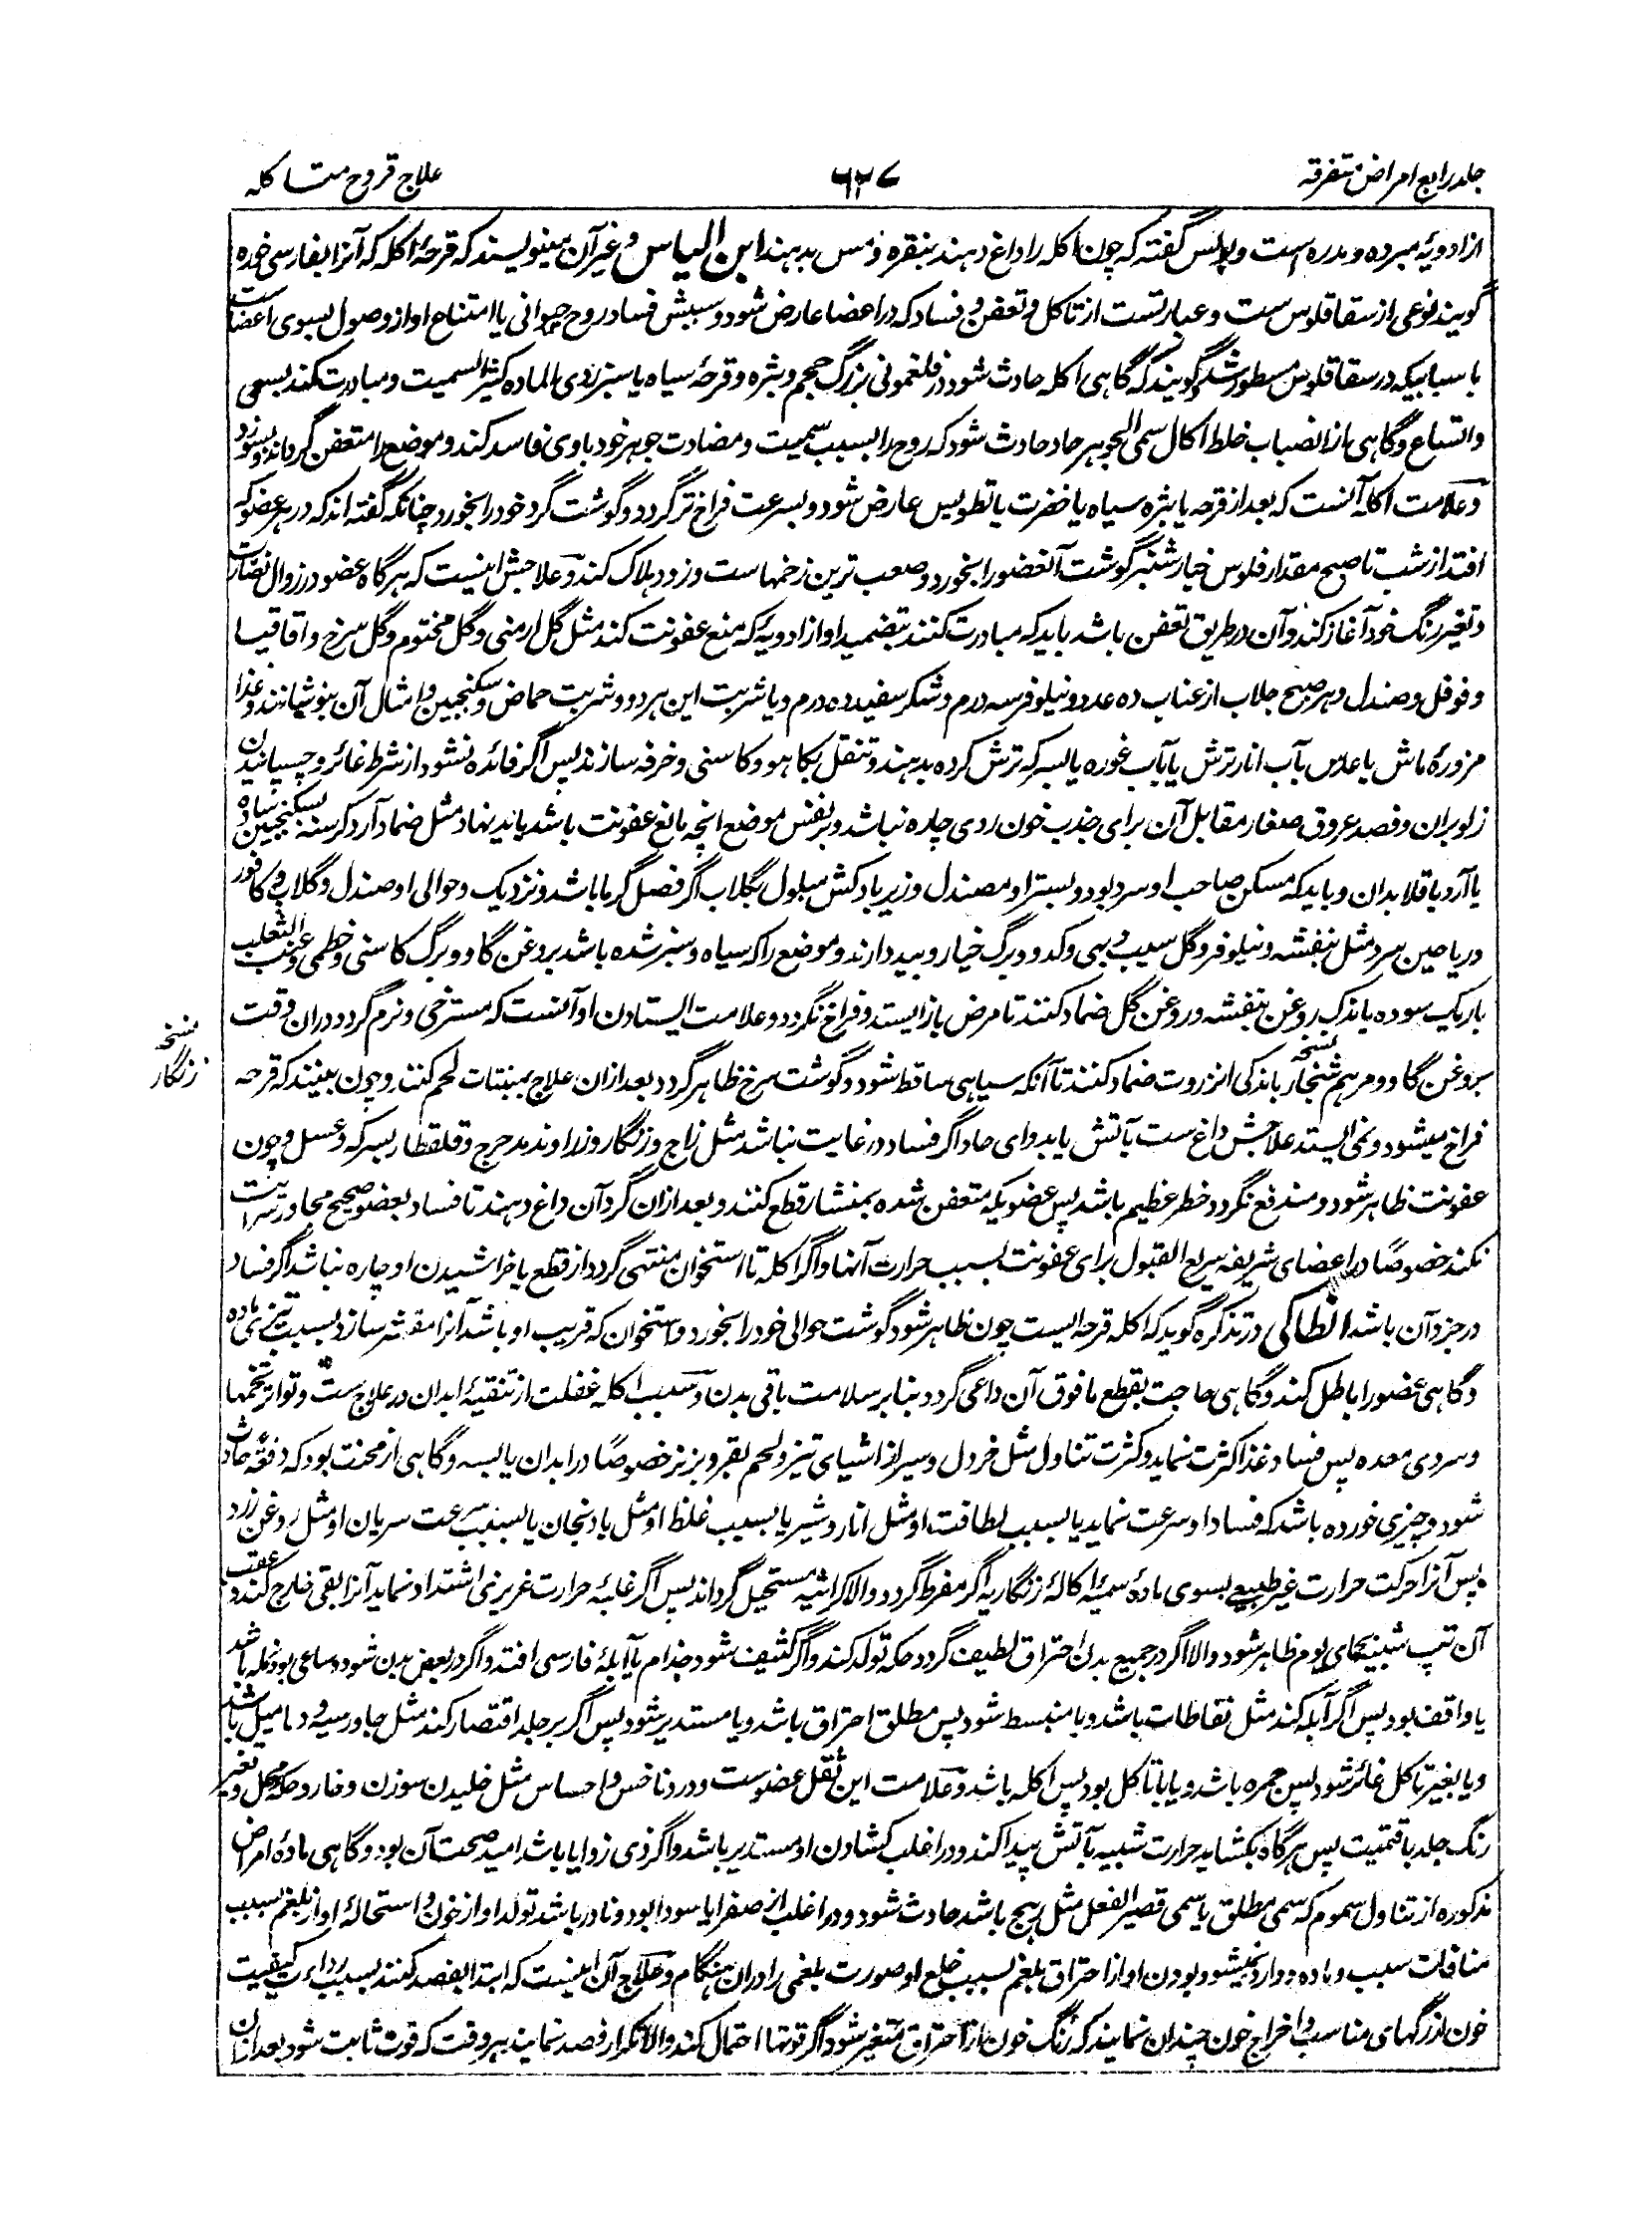 جلد رابع امراض متفرقه
۶۲۷
علاج قروح متاکله
از ادویهٔ مبرده و مدره است و پولس گفته که چون اکله را داغ دهند بنقره و مس بدهند ابن الیاس و غیر آن مینویسند که قرحهٔ اکله که آنرا بفارسی خوره
گویند نوعی از سقاقلوس ست و عبارتست از تاکل و تعفن و فساد که در اعضا عارض شود و سببش فساد روح حیوانی یا امتناع او از وصول بسوی اعضاست
باسبابیکه در سقاقلوس مسطور شد و گویند که گاهی اکله حادث شود در فلغمونی بزرگ حجم و بثره و قرحهٔ سیاه یا سبز ردی الماده کثیر السمیت و مبادرت کند بسعی
و اتساع و گاهی از انصباب خلط اکال سمی الجوهر حاد حادث شود که روح را بسبب سمیت و مضادت جوهر خود با وی فاسد کند و موضع را متعفن گرداند و بسوزد
و علامت اکله آنست که بعد از قرحه یا بثره سیاه یا خضرت یا تطویس عارض شود و بسرعت فراخ تر گردد و گوشت گرد خود را بخورد چنانکه گفته اند که در هر عضو که
افتد از شب تا صبح مقدار فلوس خیارشنبر گوشت آنعضو را بخورد و صعب ترین زخمهاست و زود هلاک کند و علاجش اینست که هرگاه عضو در زوال نضارت
و تغیر رنگ خود آغاز کند و آن در طریق تعفن باشد باید که مبادرت کنند بتضمید او از ادویه که منع عفونت کند مثل گل ارمنی و گل مختوم و گل سرخ و اقاقیا
و فوفل و صندل و هر صبح جلاب از عناب ده عدد و نیلوفر سه درم و شکر سفید ده درم و یا شربت این هر دو و شربت حماض و سکنجبین و امثال آن بنوشانند و غذا
مزورهٔ ماش یا عدس بآب انار ترش یا بآب غوره یا بسرکه ترش کرده بدهند و تنقل بکاهو و کاسنی و خرفه سازند پس اگر فائده نشود از شرط غائر و چسپانیدن
زلو بران و فصد عروق صغار مقابل آن برای جذب خون ردی چاره نباشد و بر نفس موضع انچه مانع عفونت باشد باید نهاد مثل ضماد آرد کرسنه بسکنجبین ساده
یا آرد باقلا بدان و باید که مسکن صاحب او سرد بود و بستر او مصندل و زیر بادکش مبلول بگلاب اگر فصل گرما باشد و نزدیک و حوالی او صندل و گلاب و کافور
و ریاحین سرد مثل بنفشه و نیلوفر و گل سیب و بهی و کدو و برگ خیار و بید دارند و موضع را که سیاه و سبز شده باشد بروغن گاو و برگ کاسنی و خطمی و عنب الثعلب
باریک سوده باندک روغن بنفشه و روغن گل ضماد کنند تا مرض باز ایستد و فراخ نگردد و علامت ایستادن او آنست که مسترخی و نرم گردد دران وقت
بروغن گاو و مرهم شنجار باندکی انزروت ضماد کنند تا آنکه سیاهی ساقط شود و گوشت سرخ ظاهر گردد بعد ازان علاج بمنبتات لحم کنند و چون بینند که قرحه
نسخه زنگار
فراخ میشود و نمی ایستد علاجش داغ ست بآتش یا بدوای حاد اگر فساد در غایت نباشد مثل زاج و زنگار و زراوند مدحرج و قلقطار بسرکه و عسل و چون
عفونت ظاهر شود و مندفع نگردد خطر عظیم باشد پس عضویکه متعفن شده بمنشار قطع کنند و بعد ازان گرد آن داغ دهند تا فساد بعضو صحیح مجاور سرایت
نکند خصوصًا در اعضای شریفه سریع القبول برای عفونت بسبب حرارت آنها و اگر اکله تا استخوان منتهی گردد از قطع یا خراشیدن او چاره نباشد اگر فساد
در جزء آن باشد انطاکی در تذکره گوید که اکله قرحه ایست چون ظاهر شود گوشت حوالی خود را بخورد و استخوان که قریب او باشد آنرا مقشر سازد بسبب تیزی ماده
و گاهی عضو را باطل کند و گاهی حاجت بقطع مافوق آن داعی گردد بنا بر سلامت باقی بدن و سبب اکله غفلت از تنقیهٔ ابدان در علاج ست و تواتر تخمها
و سردی معده پس فساد غذا کثرت نماید و کثرت تناول مثل خردل و سیر از اشیای تیز و لحم بقر و بز نر خصوصًا در ابدان یابسه و گاهی از محنت بود که دفعةً حادث
شود و چیزی خورده باشد که فساد او سرعت نماید یا بسبب لطافت او مثل انار و شیر یا بسبب غلظ او مثل بادنجان یا بسبب سرعت سریان او مثل روغن زرد
پس آنرا حرکت حرارت غیر طبیعی بسوی مادهٔ سمیه اکالهٔ زنگاریه اگر مفرط گردد و الا کراثیه مستحیل گرداند پس اگر غلبهٔ حرارت غریزی اشتداد نماید آنرا بقی خارج کند و عقب
آن تپ شبیه بحمای یوم ظاهر شود و الا اگر در جمیع بدن احتراق لطیف گردد حکه تولد کند و اگر کثیف شود جذام یا آبلهٔ فارسی افتد و اگر در بعض بدن شود و ساعی بود نمله باشد
یا واقف بود پس اگر آبله کند مثل نفاطات باشد و یا منبسط شود پس مطلق احتراق باشد و یا مستدیر شود پس اگر بر جلد اقتصار کند مثل جاورسیه و دمامیل باشد
و یا بغیر تاکل غائر شود پس جمره باشد و یا با تاکل بود پس اکله باشد و علامت این ثقل عضوست و درد ناخس و احساس مثل خلیدن سوزن و خار و حکه و تغیر
رنگ جلد باقتمیت پس هرگاه بکشاید حرارت شبیه بآتش پیدا کند و در اغلب کشادن او مستدیر باشد و اگر ذی زوایا باشد امید صحت آن بود و گاهی مادهٔ امراض
مذکوره از تناول سموم که سمی مطلق یا سمی قصیر الفعل مثل رهج باشد حادث شود و در اغلب از صفرا یا سودا بود و نادر باشد تولد او از خون و استحالهٔ او از بلغم بسبب
منافات سبب و ماده و وارد نمیشود بودن او از احتراق بلغم بسبب خلع او صورت بلغمی را دران هنگام و علاج آن اینست که ابتدا بفصد کنند بسبب رداءت کیفیت
خون از رگهای مناسب و اخراج خون چندان نمایند که رنگ خون از احتراق متغیر شود اگر قوتها احتمال کند و الا تکرار فصد نمایند هر وقت که قوت ثابت شود بعد ازان